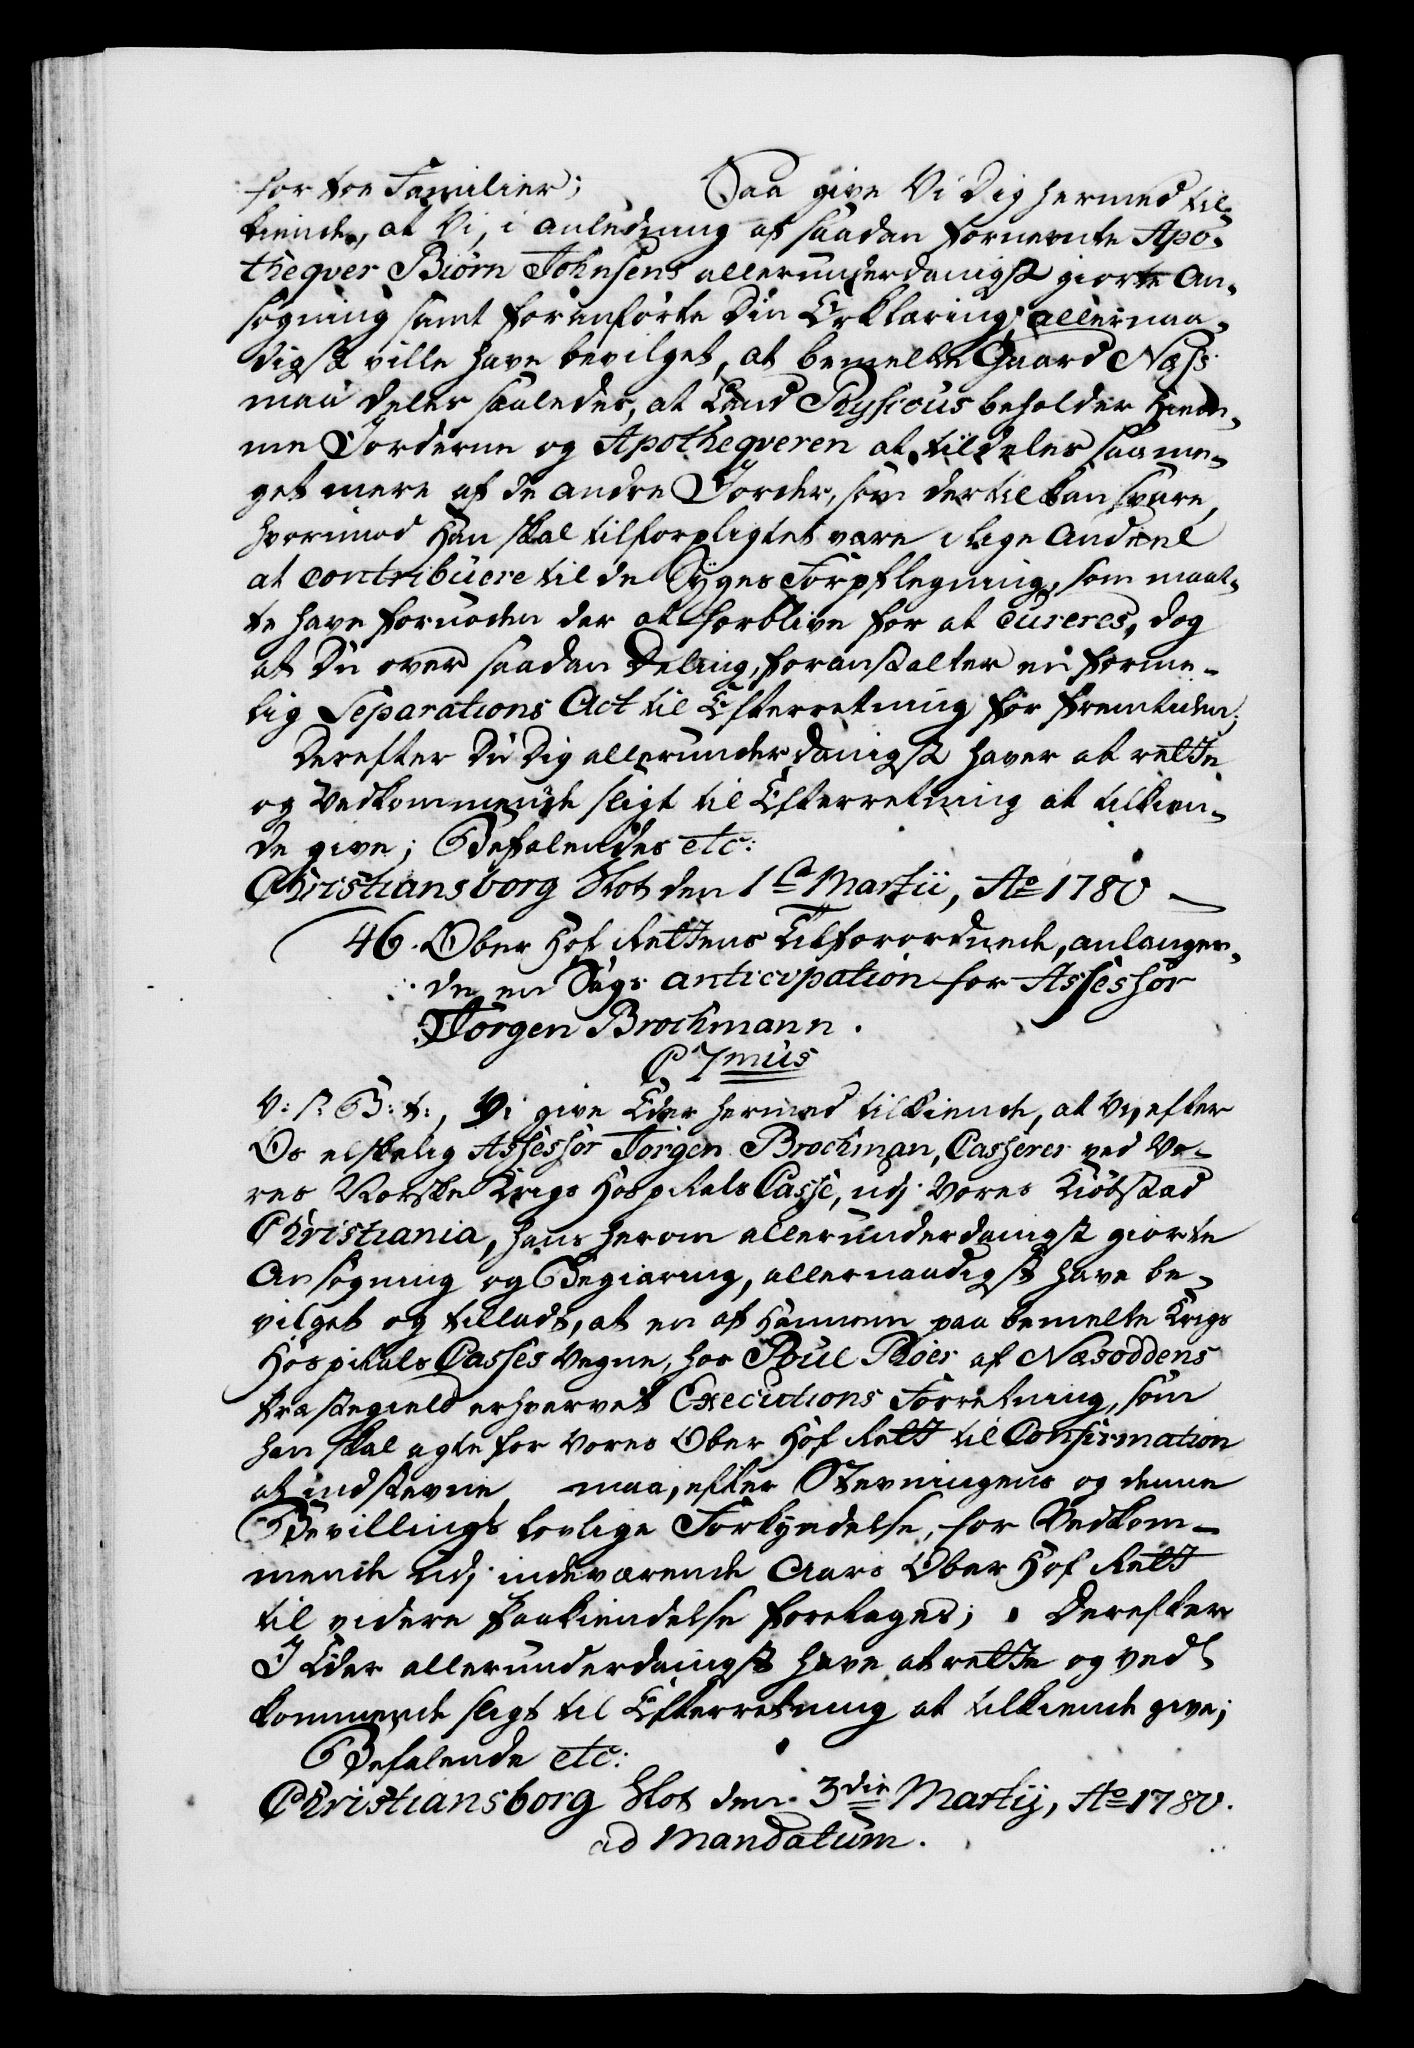 for toe Familier; Saa give Vi Dig hermed til-
kiende, at Vi, i anledning af saadan fornevnte Apo-
theqver Biørn Johnsens allerunderdanigst giorte An-
søgning samt foranførte Din Erklæring, allernaa-
digst ville have bevilget, at bemelte Gaard Næss
maa deles saaledes, at Land Physicus beholder Hiem-
me Jorderne og Apotheqveren at tildeles saame-
get mere af de andre Jorder, som dertil kan svare,
hvorimod Han skal tilforpligtet være i lige Andeel
at contribuere til de Syges Forpflegning, som maat-
te have fornøden der at forblive for at cureres, dog
at Du over saadan Deling, foranstalter en forme-
lig Separations Act til Efterretning for fremtiden;
Derefter Du Dig allerunderdanigst haver at rette
og Vedkommende sligt til Efterretning at tilkien-
de give; Befalendes etc:
Christiansborg Slot den 1ste Martii, Ao 1780
46. Ober Hof Rettens Tilforordnede, anlangen-
de en Sags anticipation for Assessor
Jørgen Brochmann.
C 7mus
V: S: G: t:, Vi give Eder hermed tilkiende, at Vi, efter
Os elskelig Assessor Jørgen Brochman, Casserer ved Vo-
res Norske Krigs Hospitals Casse, udj Vores Kiøbstad
Christiania, hans herom allerunderdanigst giorte
Ansøgning og Begiæring, allernaadigst have be-
vilget og tilladt, at en af Hannem paa bemelte Krigs
Hospitals Casses Vegne, hos Poul Røer af Næsoddens
Præstegield erhvervet Executions Forretning, som
han skal agte for Vores Ober Hof Rett til Confirmation
at indstevne maa, efter Stevningens og denne
Bevillings lovlige Forkyndelse, for Vedkom-
mende udj indeværende Aars Ober Hof Rett
til videre Paakiendelse foretages; Derefter
I Eder allerunderdanigst have at rette og Ved-
kommende sligt til Efterretning at tilkiende give;
Befalende etc:
Christiansborg Slot den 3die Martij, Ao 1780.
ad Mandatum.